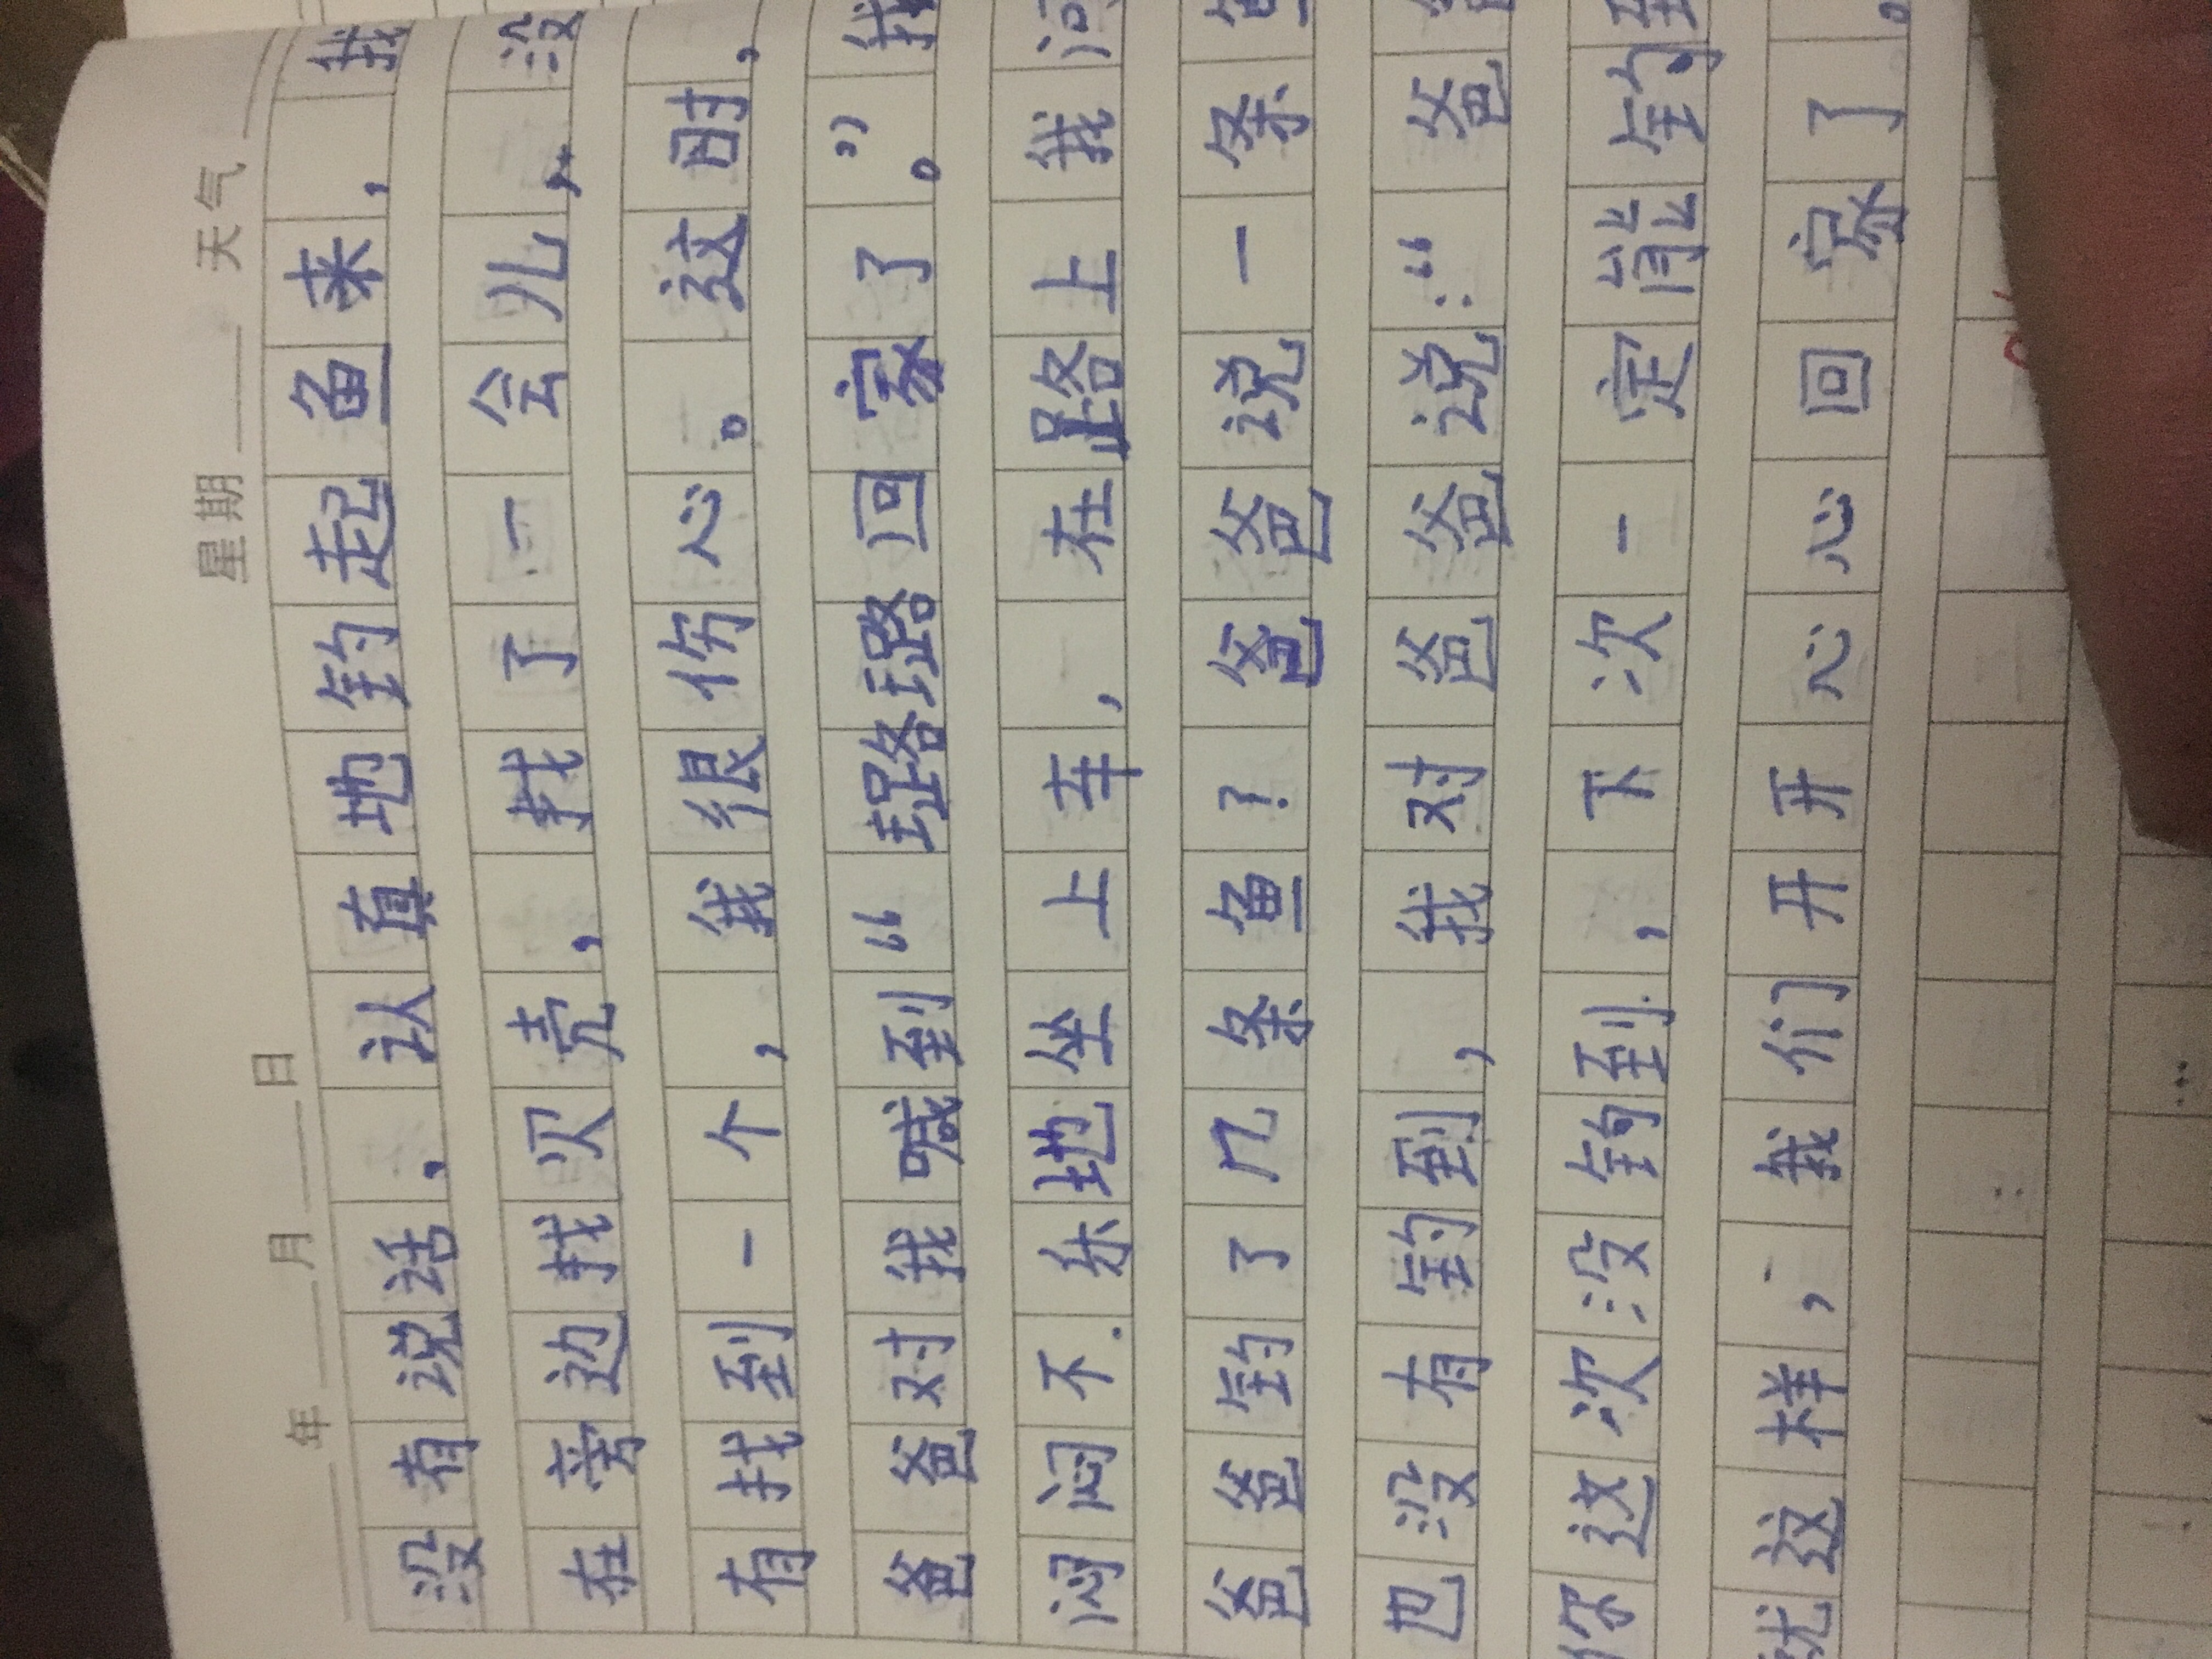 年 月 日 星期 天气
没有说话，认真地钓起鱼来，我
在旁边找贝壳，找了一会儿，没
有找到一个，我很伤心。这时，
爸爸对我喊到“回家了”。我
闷闷不乐地坐上车，在路上我问
爸爸钓了几条鱼？爸爸说一条鱼
也没有钓到，我对爸爸说：“爸爸
你这次没钓到，下次一定能钓到
就这样，我们开开心心回家了。